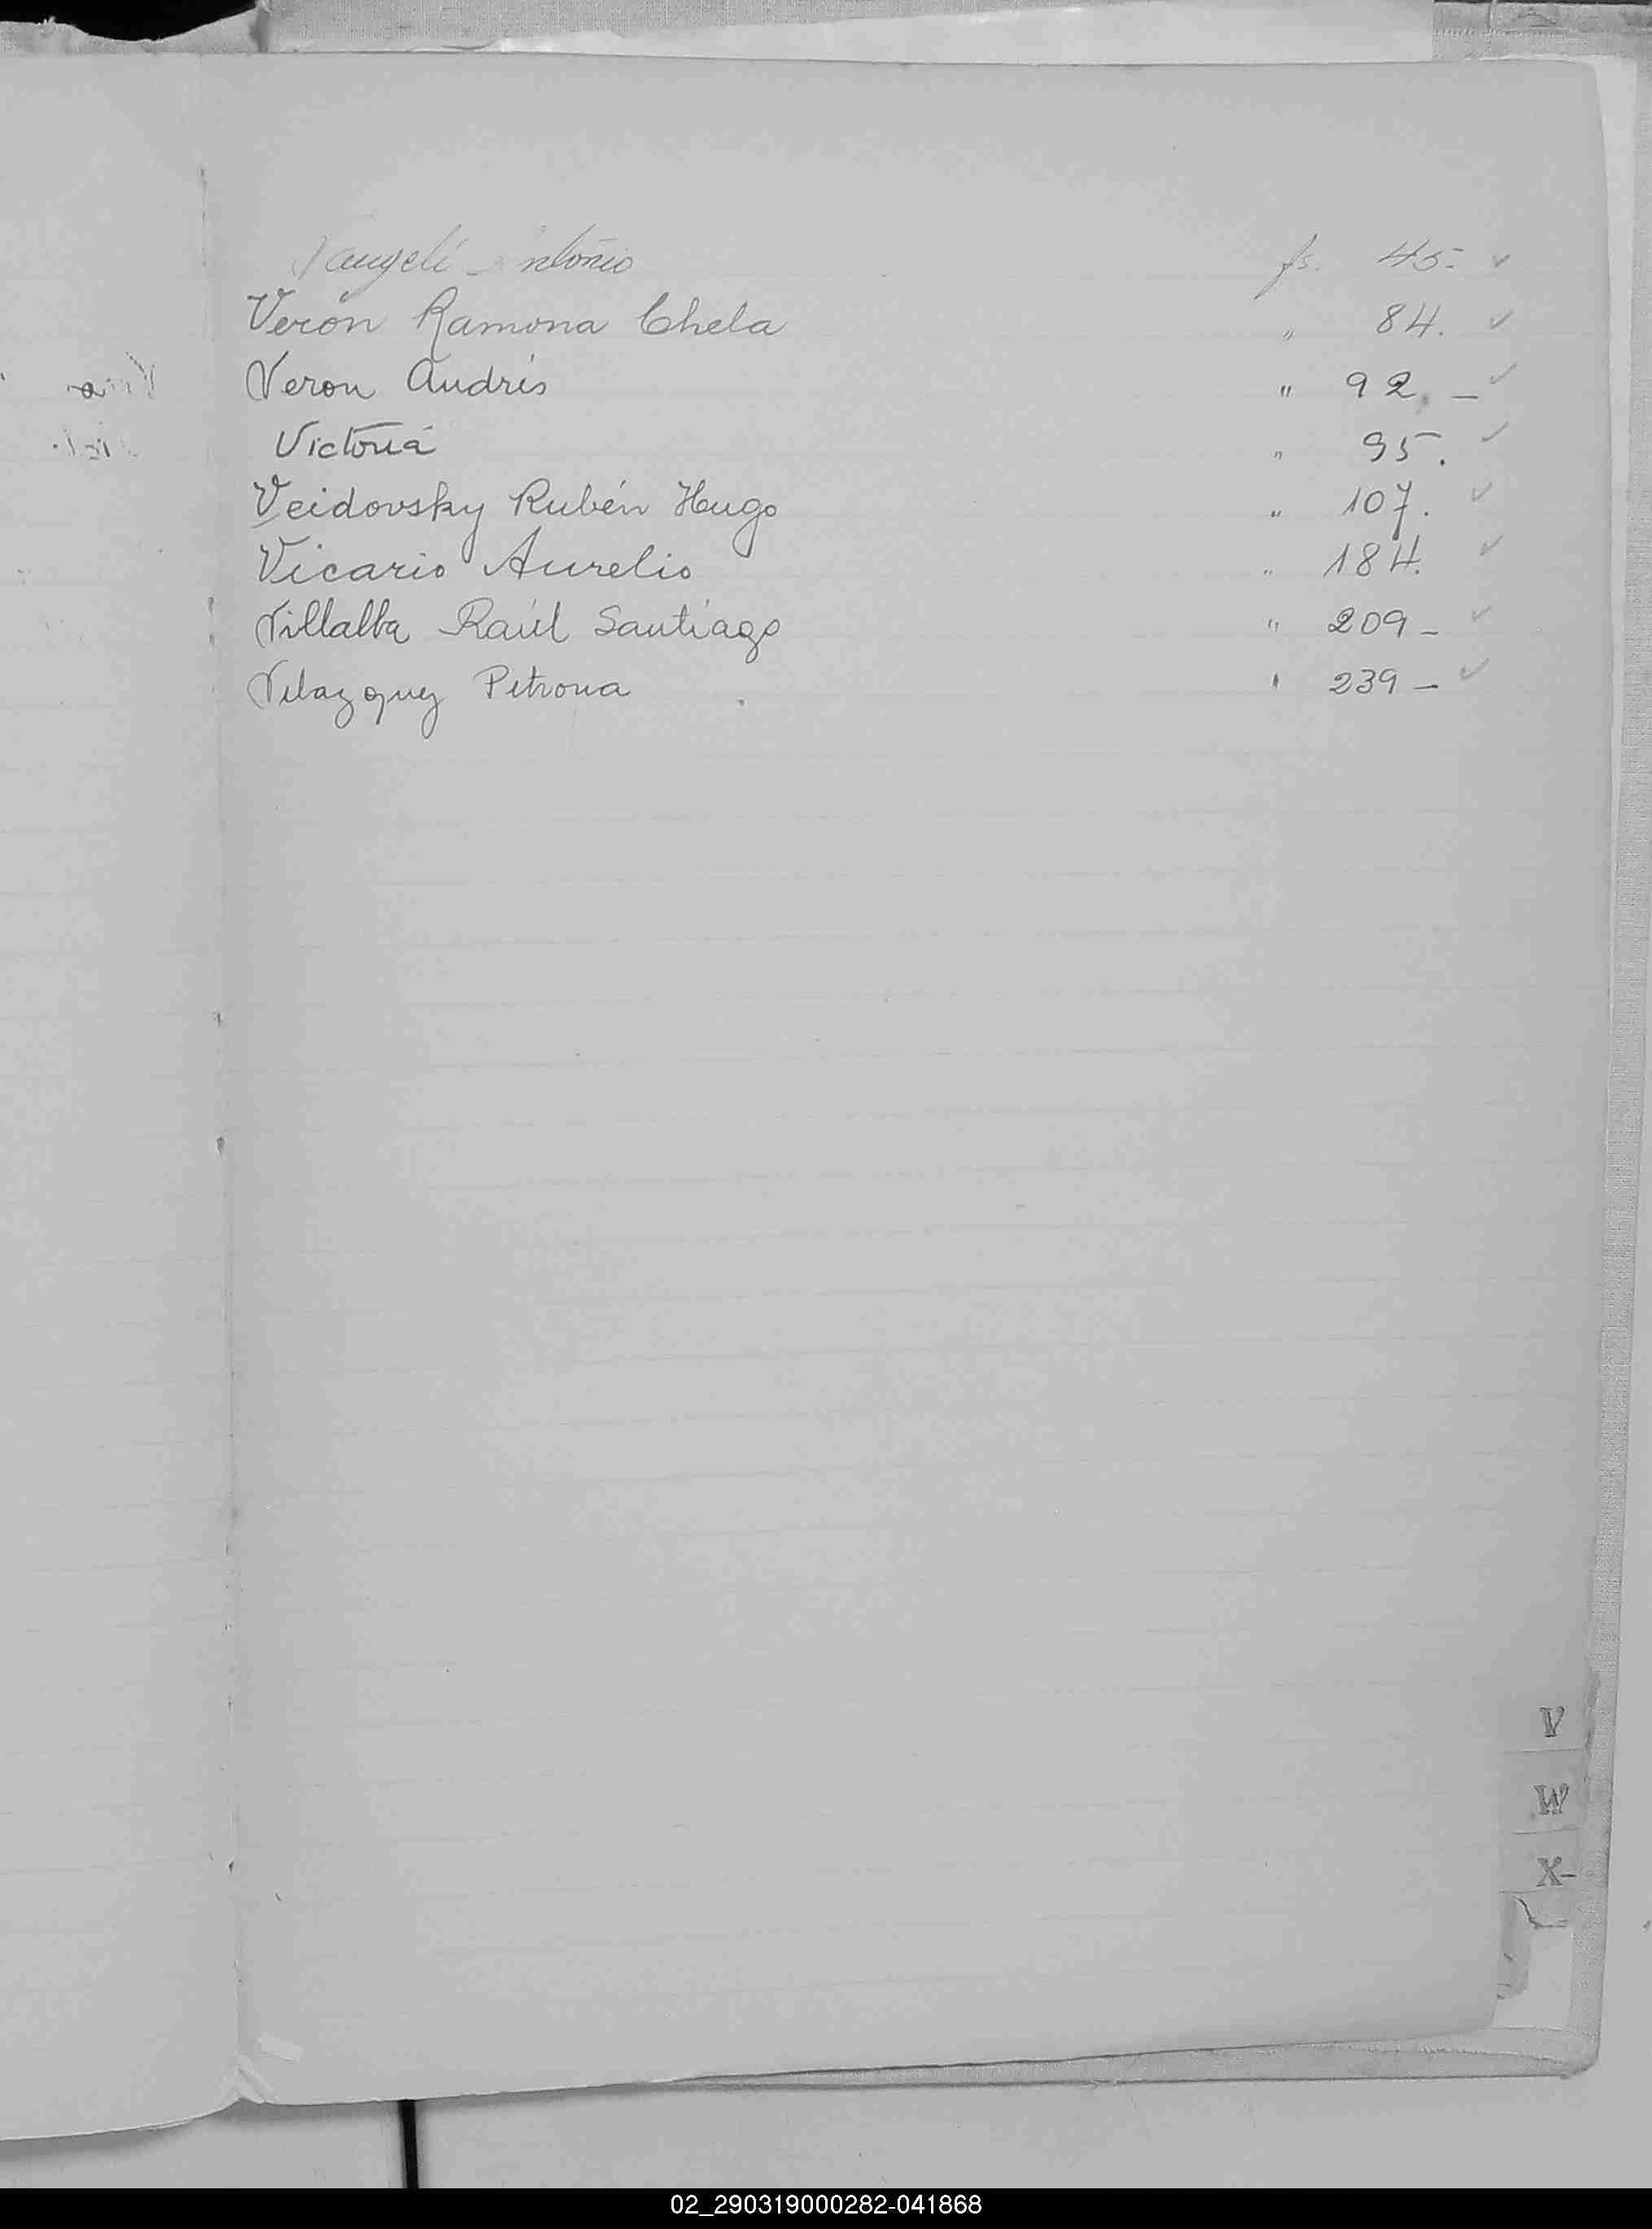 Vangeli Antonio fs. 45.- ✓
Verón Ramona Chela " 84. ✓
Veron Andrés " 92. - ✓
Victoria " 95. ✓
Veidovsky Rubén Hugo " 107. ✓
Vicario Aurelio " 184. ✓
Villalba Raúl Santiago " 209 - ✓
Velazquez Petrona " 239 - ✓
V
W
X-
02_290319000282-041868